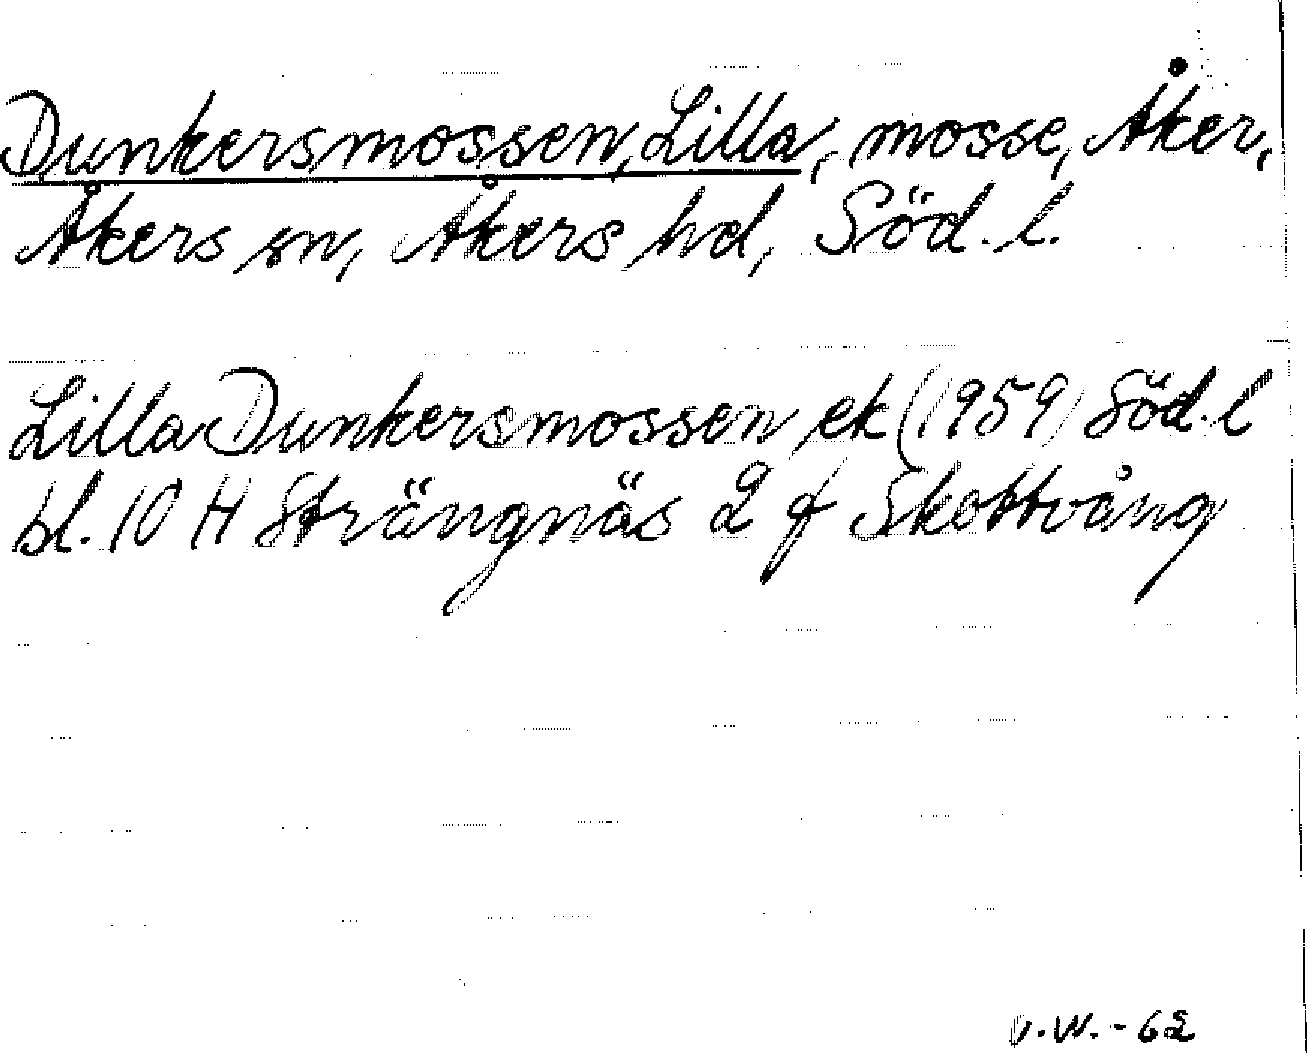 Dunkersmossen, Lilla, mosse, Åker,
Åkers sn, Åkers hd, Söd. l.
Lilla Dunkersmossen ek (1959) Söd. l
bl. 10 H Strängnäs 2 f Skottvång
V.W. - 62